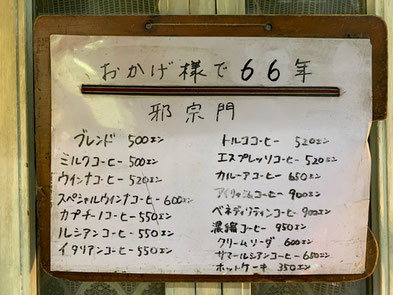 おかげ様で66年
邪宗門
ブレンド 500エン
ミルクコーヒー 500エン
ウインナコーヒー 520エン
スペシャルウインナコーヒー 600エン
カプチーノコーヒー 550エン
ルシアンコーヒー 550エン
イタリアンコーヒー 550エン
トルココーヒー 520エン
エスプレッソコーヒー 520エン
カルーアコーヒー 650エン
アイリッシュコーヒー 900エン
ベネディクティンコーヒー 900エン
濃縮コーヒー 950エン
クリームソーダ 600エン
サマールシアンコーヒー 650エン
ホットケーキ 350エン